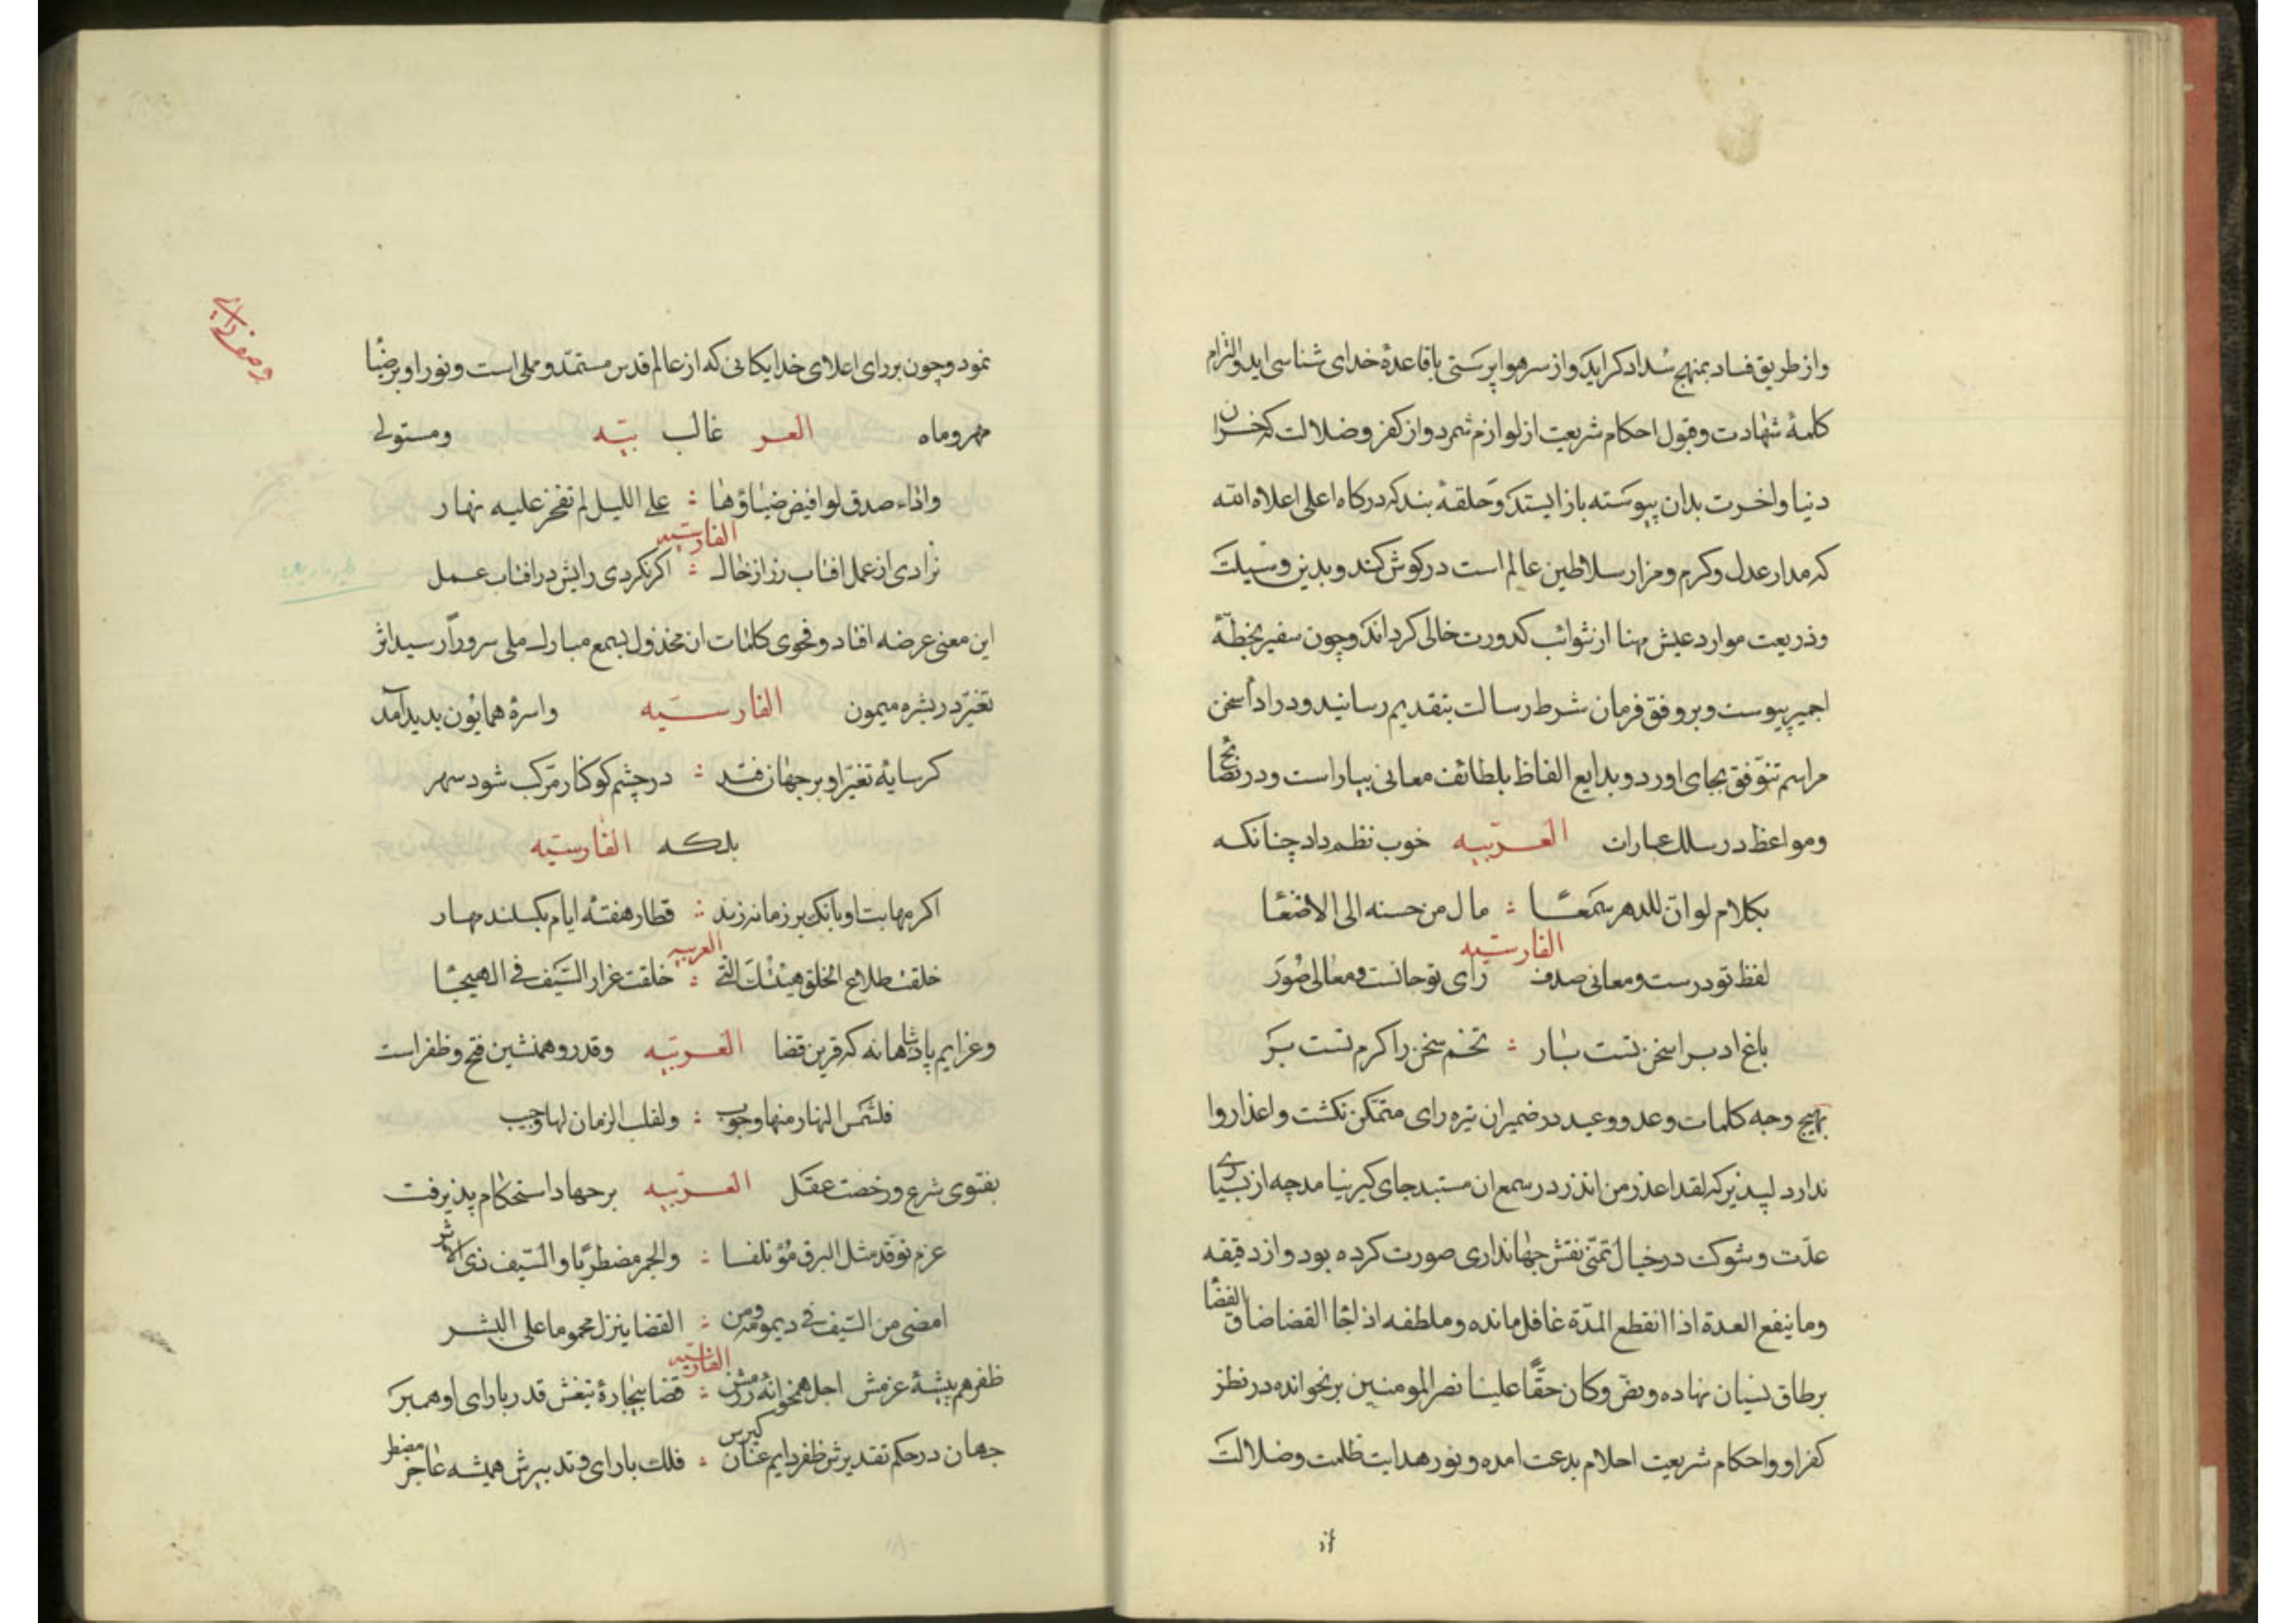 واز طریق فساد بمنهج سداد کراید واز سر هوا پرستی باقاعدهٔ خدای شناسی اید والتزام
کلمهٔ شهادت وقبول احکام شریعت از لوازم شمرد واز کفر وضلالت که خسران
دنیا واخرت بدان پیوسته باز ایستد وحلقهٔ بندکی درکاه اعلی اعلاه الله
که مدار عدل وکرم ومزار سلاطین عالم است در کوش کند وبدین وسیلت
وذریعت موارد عیش مهنا از شوائب کدورت خالی کرداند وچون سفیر بخطهٔ
اجمیر پیوست وبر وفق فرمان شرط رسالت بتقدیم رسانید ودر ادا سخن
مراسم تنوق بجای اورد وبدایع الفاظ بلطائف معانی بیاراست ودر نصائح
ومواعظ در سلک عبارات العربیه خوب نظم داد چنانکه
بکلام لو ان للدهر سمعا مال من حسنه الی الاصغا
الفارسیه
لفظ تو درست ومعانی صدف رای تو جانست ومعالی صور
باغ ادب را سخن تست بار تخم سخن را کرم تست بر
بهیچ وجه کلمات وعد ووعید در ضمیر ان تیره رای متمکن نکشت واعذار وا
ندارد لپذیر که لقد اعذر من انذر در سمع ان مستبد جای کیر نیامد چه از بسیاری
عدت وشوکت در خیال تمنی نقش جهانداری صورت کرده بود واز دقیقه
وما ینفع العدة اذا انقطع المدة غافل مانده وملطفه اذ لجا القضا ضاق الفضا
بر طاق نسیان نهاده ونص وکان حقا علینا نصر المومنین برنخوانده در نظر
کفر او واحکام شریعت احلام بدعت امده ونور هدایت ظلمت وضلالت
نمود وچون بر رای اعلای خدایکانی که از عالم قدس مستمد ومملی است ونور او بر ضیا
مهر وماه العر غالب بیه ومستولی
واذاء صدق لو افیض ضیاؤها علی اللیل لم تفخر علیه نهار
الفارسیه
نزادی از عمل افتاب رز از خاک اکر نکردی رایش در افتاب عمل
این معنی عرضه افتاد وفحوی کلمات ان مخذول بسمع مبارک ملی سرور آر سید اثر
تغیر در بشره میمون الفارسیه واسرهٔ همایون بدید آمد
کر سایهٔ تغیر او بر جهان فتد در چشم کوکنار مرکب شود سهر
بلکه الفارسیه
اکر مهابت او بانک بر زمانه زند قطار هفتهٔ ایام بکسلند مهار
العربیه
خلقت طلاع الخلق هیئتک التی خلقت غرار السیف فی الهیجا
وعزایم پادشاهانه که قرین قضا العربیه وقدر وهمنشین فتح وظفر است
فلشمس النهار منها وجوب ولقلب الزمان لها وجیب
بفتوی شرع ورخصت عقل العربیه بر جهاد استحکام پذیرفت
عزم توقد مثل البرق مؤتلفا والجمر مضطربا والسیف ذی الاثر
امضی من السیف فی دیمومة ومن القضا ینزل محموما علی البشر
الفارسیه
ظفر هم پیشهٔ عزمش اجل همخوانهٔ رزمش قضا بیچارهٔ تیغش قدر بارای او همبر
جهان در حکم تقدیرش ظفر دایم عنان کیرش فلک بارای وتدبیرش همیشه عاجز مضطر